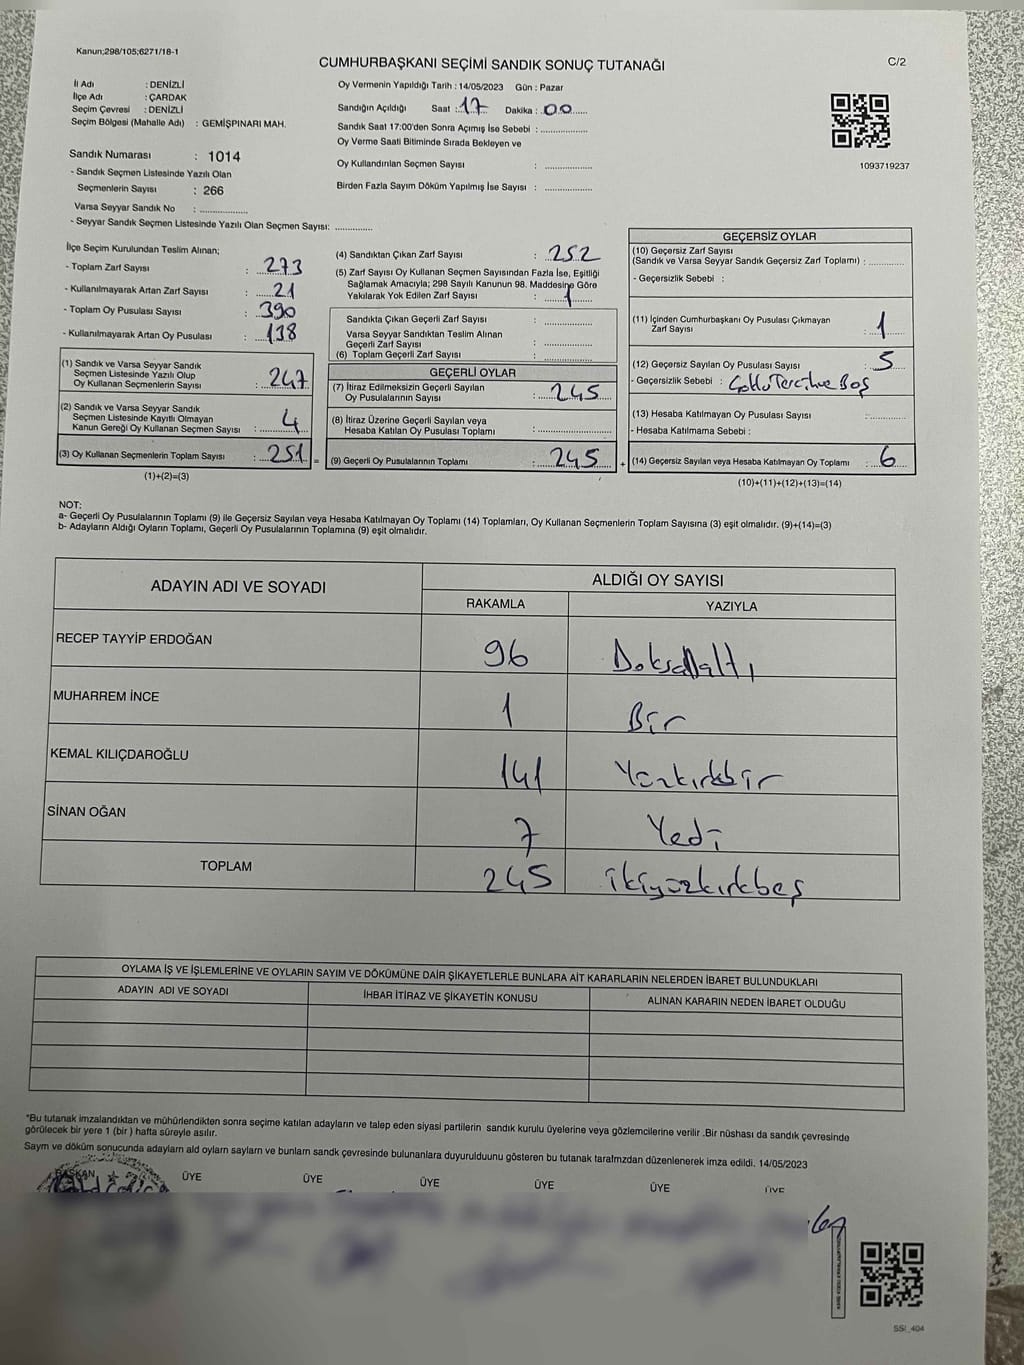 Kanun;298/105;6271/18-1
CUMHURBAŞKANI SEÇİMİ SANDIK SONUÇ TUTANAĞI
C/2
İl Adı : DENİZLİ
İlçe Adı : ÇARDAK
Seçim Çevresi : DENİZLİ
Seçim Bölgesi (Mahalle Adı) : GEMİŞPINARI MAH.
Oy Vermenin Yapıldığı Tarih : 14/05/2023 Gün : Pazar
Sandığın Açıldığı Saat : 17 Dakika : 00
Sandık Saat 17:00'den Sonra Açımış İse Sebebi :
Oy Verme Saati Bitiminde Sırada Bekleyen ve
Oy Kullandırılan Seçmen Sayısı :
Birden Fazla Sayım Döküm Yapılmış İse Sayısı :
1093719237
Sandık Numarası : 1014
- Sandık Seçmen Listesinde Yazılı Olan
Seçmenlerin Sayısı : 266
Varsa Seyyar Sandık No :
- Seyyar Sandık Seçmen Listesinde Yazılı Olan Seçmen Sayısı:
İlçe Seçim Kurulundan Teslim Alınan;
- Toplam Zarf Sayısı : 273
- Kullanılmayarak Artan Zarf Sayısı : 21
- Toplam Oy Pusulası Sayısı : 390
- Kullanılmayarak Artan Oy Pusulası : 138
(1) Sandık ve Varsa Seyyar Sandık
Seçmen Listesinde Yazılı Olup
Oy Kullanan Seçmenlerin Sayısı : 247
(2) Sandık ve Varsa Seyyar Sandık
Seçmen Listesinde Kayıtlı Olmayan
Kanun Gereği Oy Kullanan Seçmen Sayısı : 4
(3) Oy Kullanan Seçmenlerin Toplam Sayısı : 251 =
(1)+(2)=(3)
(4) Sandıktan Çıkan Zarf Sayısı : 252
(5) Zarf Sayısı Oy Kullanan Seçmen Sayısından Fazla İse, Eşitliği
Sağlamak Amacıyla; 298 Sayılı Kanunun 98. Maddesine Göre
Yakılarak Yok Edilen Zarf Sayısı : 1
Sandıkta Çıkan Geçerli Zarf Sayısı :
Varsa Seyyar Sandıktan Teslim Alınan
Geçerli Zarf Sayısı :
(6) Toplam Geçerli Zarf Sayısı :
GEÇERLİ OYLAR
(7) İtiraz Edilmeksizin Geçerli Sayılan
Oy Pusulalarının Sayısı : 245
(8) İtiraz Üzerine Geçerli Sayılan veya
Hesaba Katılan Oy Pusulası Toplamı :
(9) Geçerli Oy Pusulalarının Toplamı : 245 +
GEÇERSİZ OYLAR
(10) Geçersiz Zarf Sayısı
(Sandık ve Varsa Seyyar Sandık Geçersiz Zarf Toplamı) :
- Geçersizlik Sebebi :
(11) İçinden Cumhurbaşkanı Oy Pusulası Çıkmayan
Zarf Sayısı : 1
(12) Geçersiz Sayılan Oy Pusulası Sayısı : 5
- Geçersizlik Sebebi : Boş
(13) Hesaba Katılmayan Oy Pusulası Sayısı :
- Hesaba Katılmama Sebebi :
(14) Geçersiz Sayılan veya Hesaba Katılmayan Oy Toplamı : 6
(10)+(11)+(12)+(13)=(14)
NOT:
a- Geçerli Oy Pusulalarının Toplamı (9) ile Geçersiz Sayılan veya Hesaba Katılmayan Oy Toplamı (14) Toplamları, Oy Kullanan Seçmenlerin Toplam Sayısına (3) eşit olmalıdır. (9)+(14)=(3)
b- Adayların Aldığı Oyların Toplamı, Geçerli Oy Pusulalarının Toplamına (9) eşit olmalıdır.
ADAYIN ADI VE SOYADI
ALDIĞI OY SAYISI
RAKAMLA YAZIYLA
RECEP TAYYİP ERDOĞAN 96 Doksanaltı
MUHARREM İNCE 1 Bir
KEMAL KILIÇDAROĞLU 141 Yüzkırkbir
SİNAN OĞAN 7 Yedi
TOPLAM 245 ikiyüzkırkbeş
OYLAMA İŞ VE İŞLEMLERİNE VE OYLARIN SAYIM VE DÖKÜMÜNE DAİR ŞİKAYETLERLE BUNLARA AİT KARARLARIN NELERDEN İBARET BULUNDUKLARI
ADAYIN ADI VE SOYADI İHBAR İTİRAZ VE ŞİKAYETİN KONUSU ALINAN KARARIN NEDEN İBARET OLDUĞU
*Bu tutanak imzalandıktan ve mühürlendikten sonra seçime katılan adayların ve talep eden siyasi partilerin sandık kurulu üyelerine veya gözlemcilerine verilir .Bir nüshası da sandık çevresinde
görülecek bir yere 1 (bir ) hafta süreyle asılır.
Saym ve döküm sonucunda adayların ald oyların sayları ve bunların sandk çevresinde bulunanlara duyurulduunu gösteren bu tutanak tarafmzdan düzenlenerek imza edildi. 14/05/2023
BAŞKAN ÜYE ÜYE ÜYE ÜYE ÜYE ÜYE
SSI_404